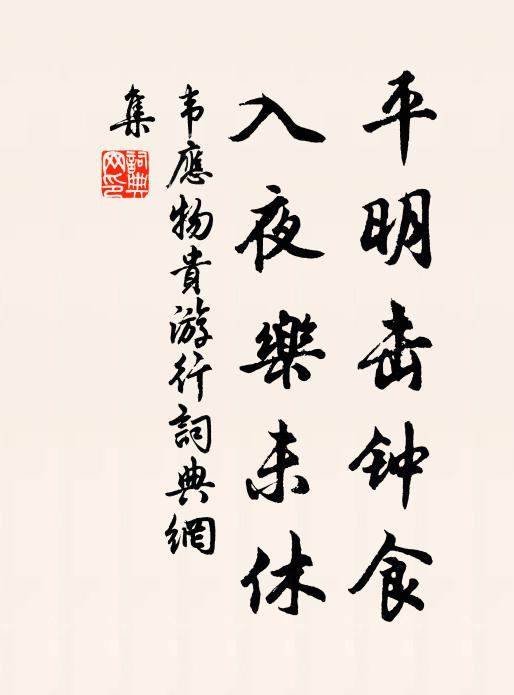 平明击钟食
入夜樂未休
韦應物貴游行詞典網
集
詞典网印